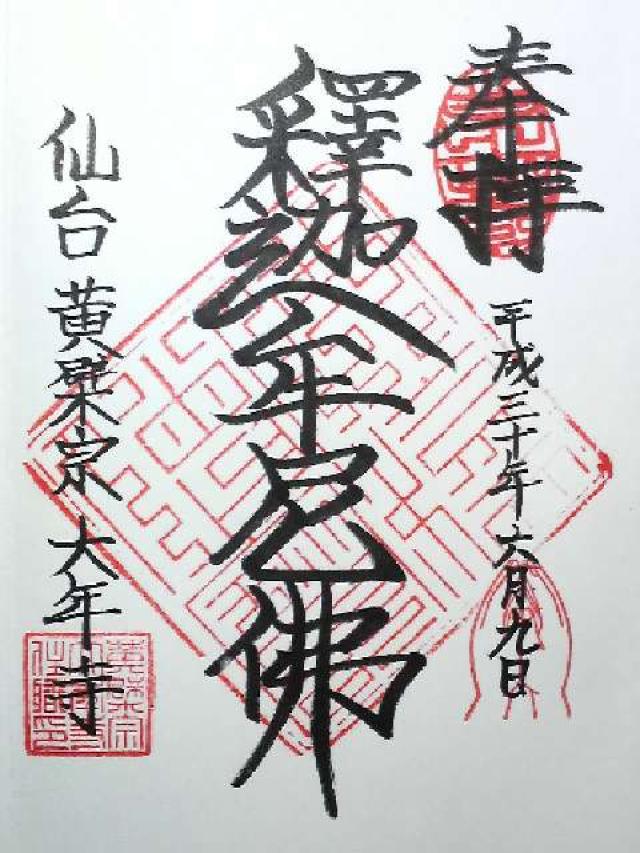 奉拝
平成三十年六月九日
釋迦牟尼佛
仙台 黄檗宗 大年寺